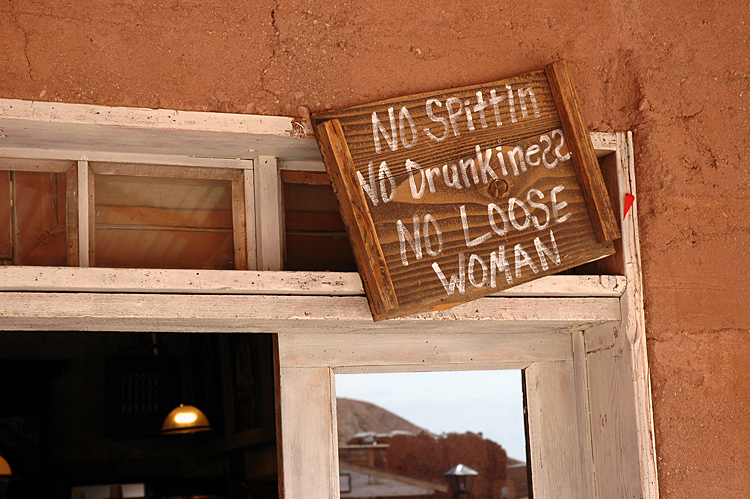 NO SPittIN
NO DrunkINess
NO LOOSE
WOMAN